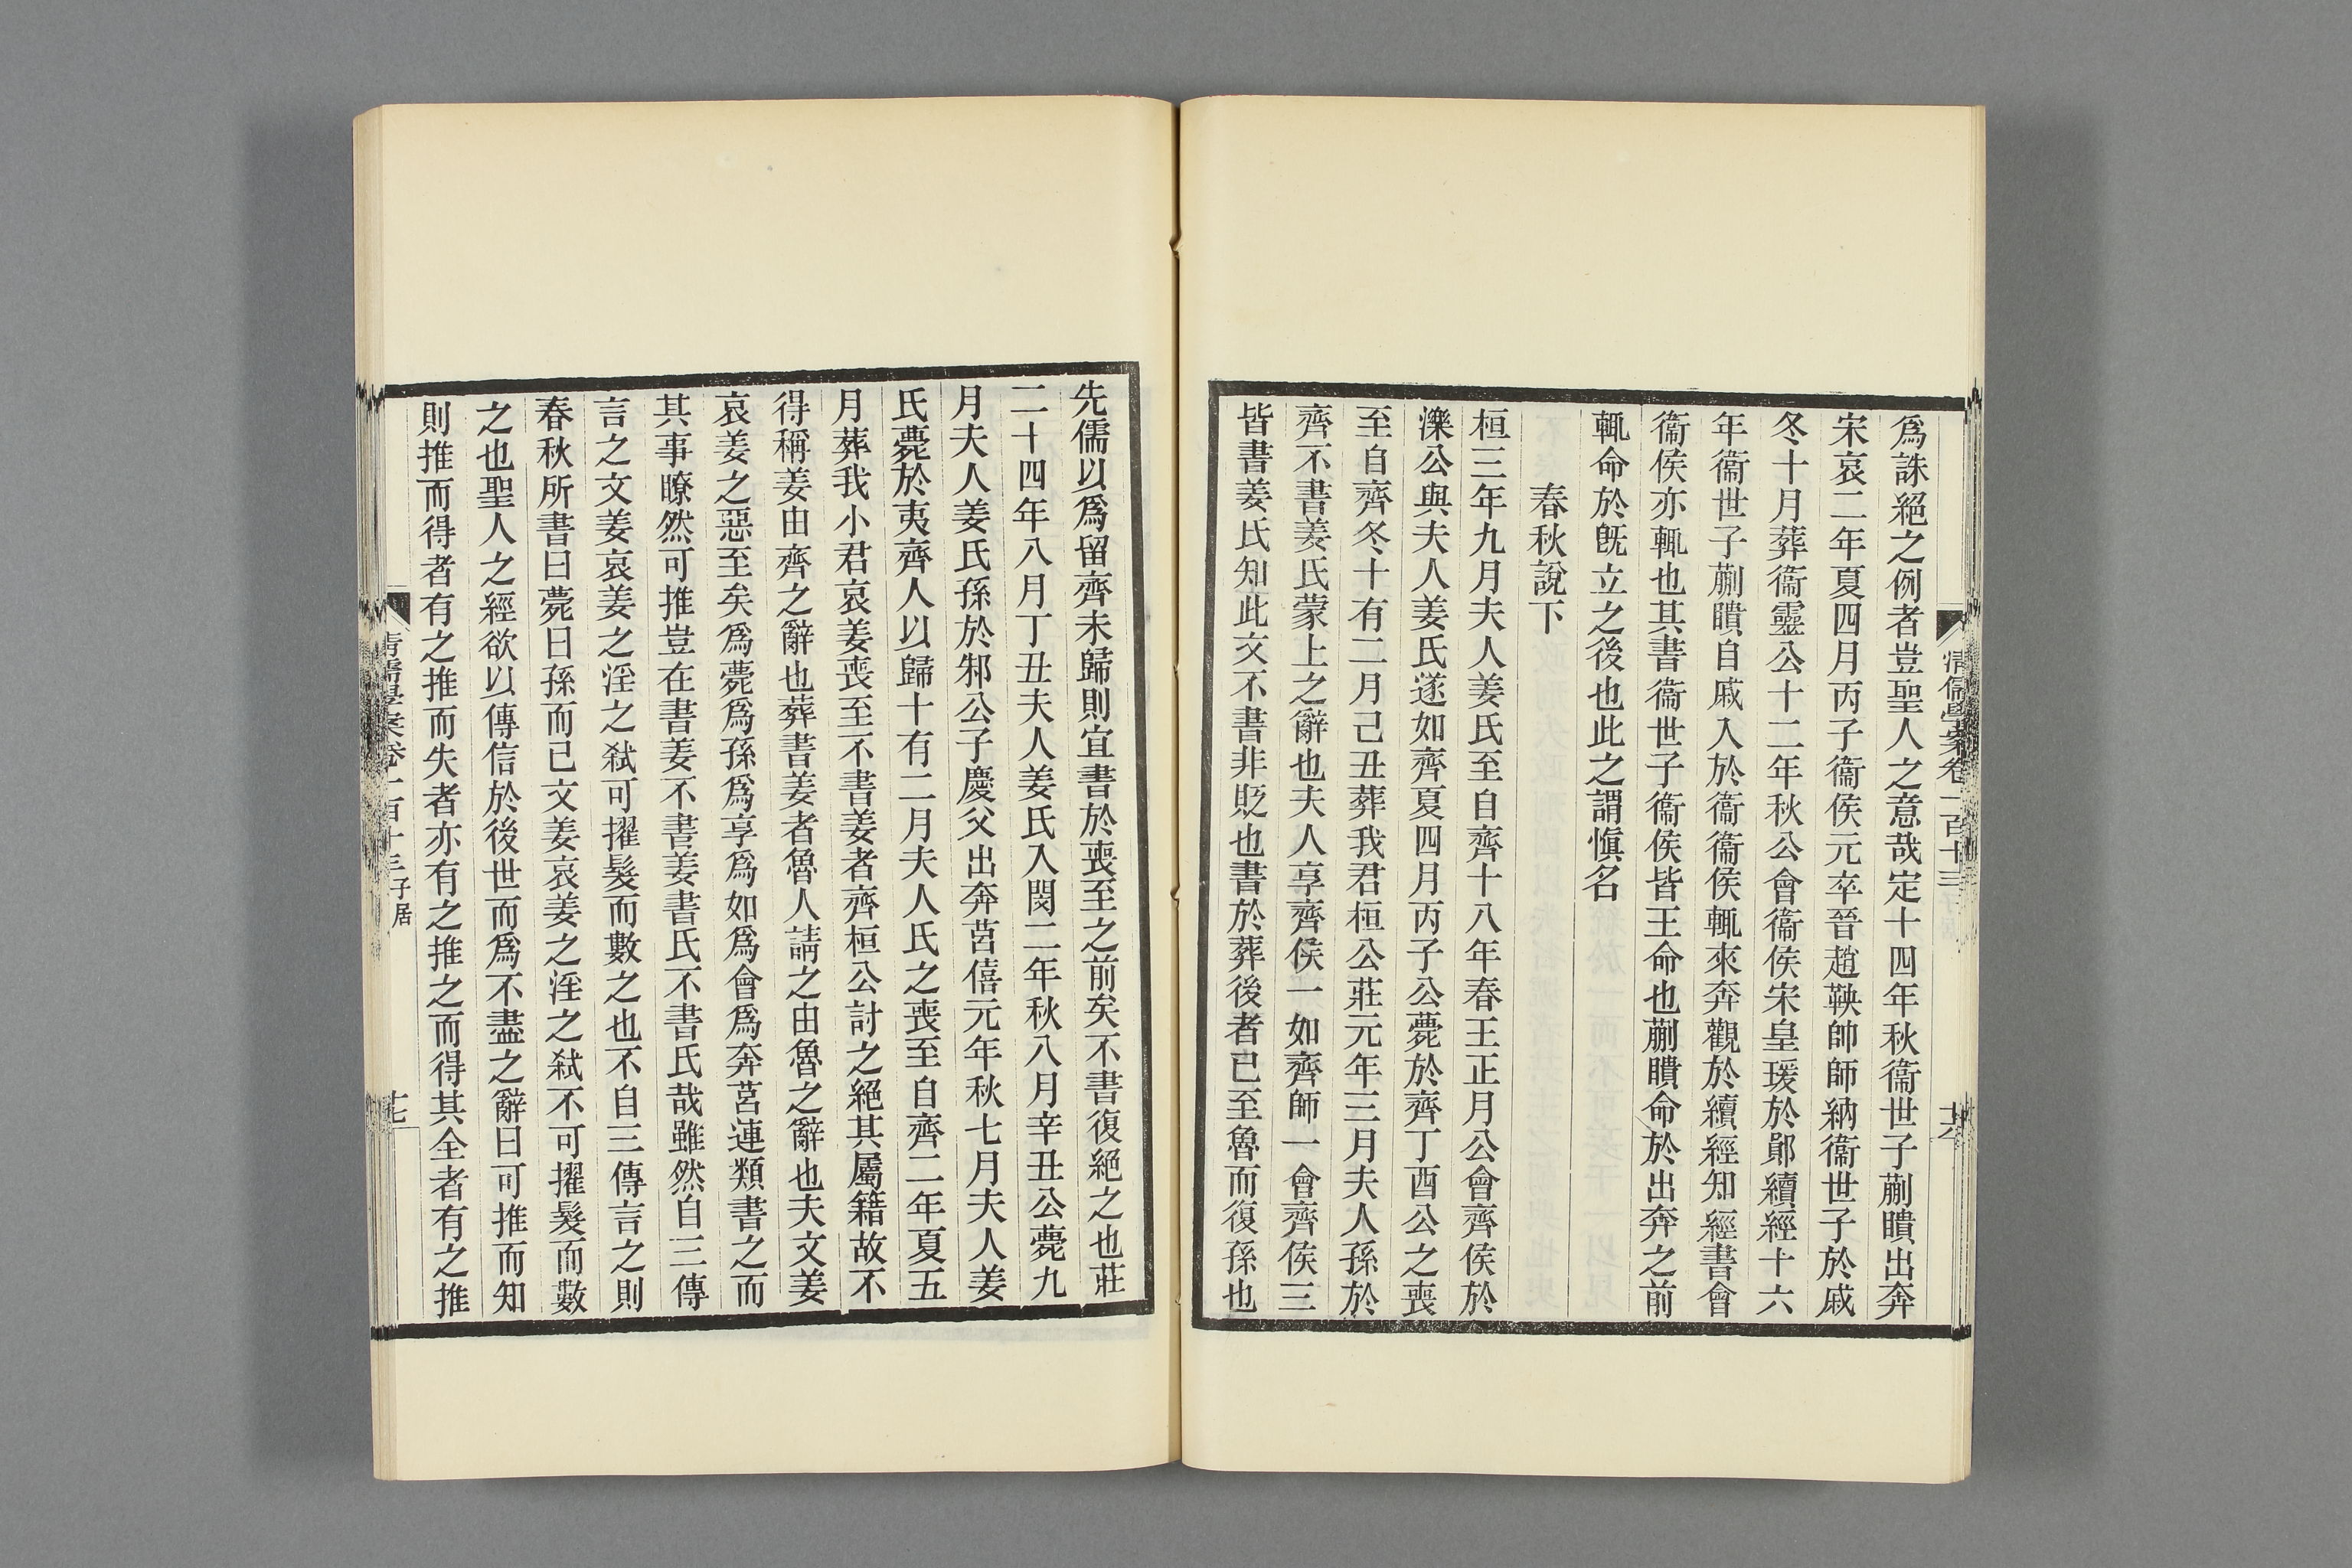 爲誅絕之例者豈聖人之意哉定十四年秋衞世子蒯聵出奔
宋哀二年夏四月丙子衞侯元卒晉趙鞅帥師納衞世子於戚
冬十月葬衞靈公十二年秋公會衞侯宋皇瑗於鄖續經十六
年衞世子蒯聵自戚入於衞衞侯輒來奔觀於續經知經書會
衞侯亦輒也其書衞世子衞侯皆王命也蒯聵命於出奔之前
輒命於旣立之後也此之謂愼名
春秋說下
桓三年九月夫人姜氏至自齊十八年春王正月公會齊侯於
濼公與夫人姜氏遂如齊夏四月丙子公薨於齊丁酉公之喪
至自齊冬十有二月己丑葬我君桓公莊元年三月夫人孫於
齊不書姜氏蒙上之辭也夫人享齊侯一如齊師一會齊侯三
皆書姜氏知此文不書非貶也書於葬後者已至魯而復孫也
清儒學案卷一百十三
十六
先儒以爲留齊未歸則宜書於喪至之前矣不書復絕之也莊
二十四年八月丁丑夫人姜氏入閔二年秋八月辛丑公薨九
月夫人姜氏孫於邾公子慶父出奔莒僖元年秋七月夫人姜
氏薨於夷齊人以歸十有二月夫人氏之喪至自齊二年夏五
月葬我小君哀姜喪至不書姜者齊桓公討之絕其屬籍故不
得稱姜由齊之辭也葬書姜者魯人請之由魯之辭也夫文姜
哀姜之惡至矣爲薨爲孫爲享爲如爲會爲奔莒連類書之而
其事瞭然可推豈在書姜不書姜書氏不書氏哉雖然自三傳
言之文姜哀姜之淫之弒可擢髮而數之也不自三傳言之則
春秋所書曰薨曰孫而已文姜哀姜之淫之弒不可擢髮而數
之也聖人之經欲以傳信於後世而爲不盡之辭曰可推而知
則推而得者有之推而失者亦有之推之而得其全者有之推
清儒學案卷一百十三 子居
十七